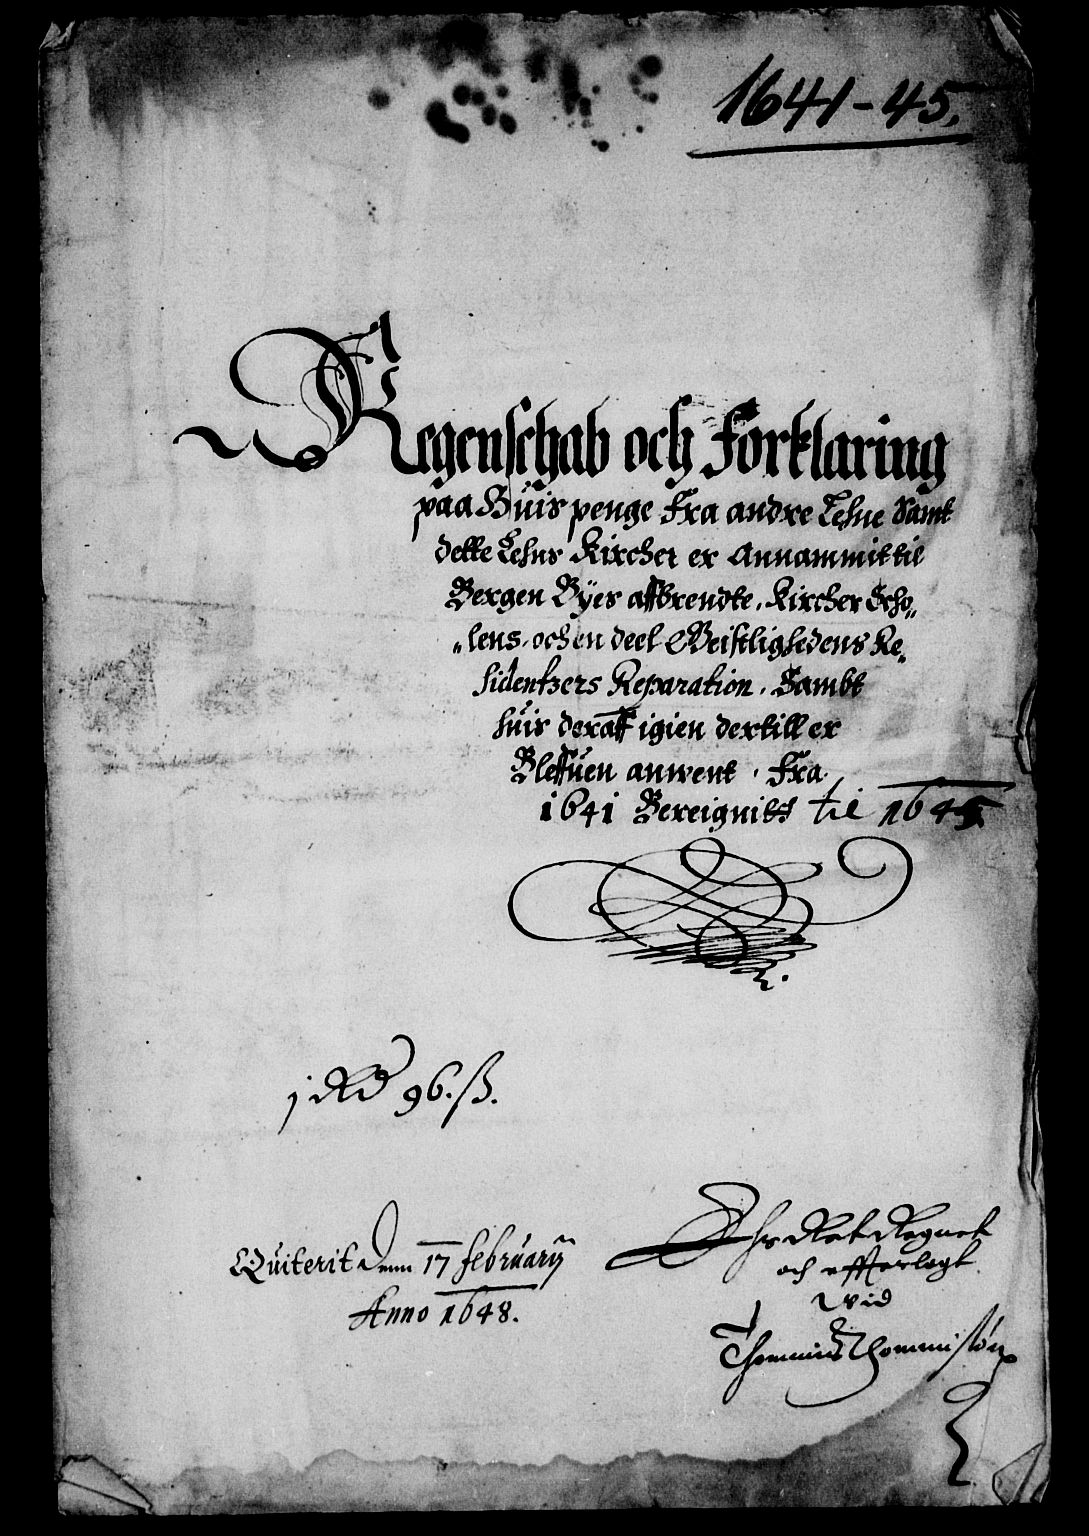 1641-45.
Regenschab och Forklaring
paa Huis penge Fra andre Lehne Samt
dette Lehns Kircher er Annammit til
Bergen Byes affbrendte. Kircher Scho„
„lens. och en deel Geistlighedens Re„
sidentzers Reparation. Sambt
huis deraff igien dertill er
Bleffuen anwent. Fra
1641 Bereignitt til 1645
j Rd 96. ß.
Quiterit Denn 17 februarij
Anno 1648.
Ehr Ret Regnet
och effterlagt
wid
Thommis Thommisøn